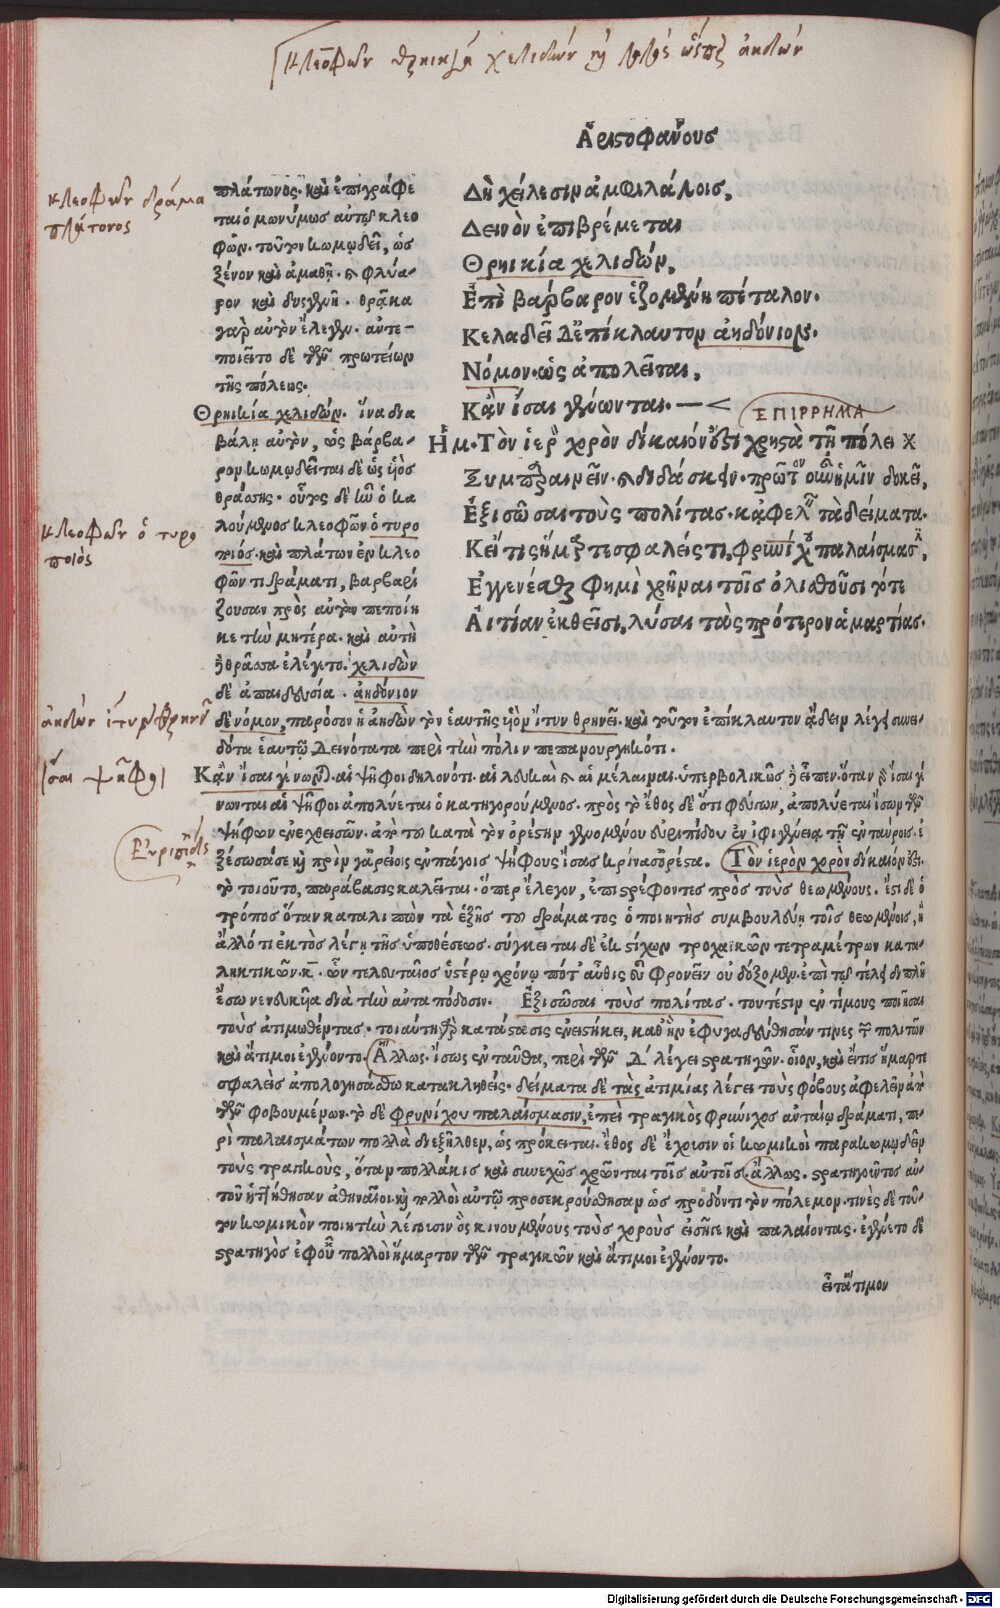 Κλεοφῶν θρηικία χελιδών ἢ ὥσπερ ἀηδών
Ἀριστοφάνους
κλεοφῶν δράμα
πλάτωνος
κλεοφῶν ὁ τυρο
ποιός
ἀηδὼν ἴτυν θρηνεῖ
ἴσαι ψῆφοι
Εὐριπίδης
πλάτωνος. καὶ ἐπιγράφε
ται ὁμωνύμως αὐτῷ κλεο
φῶν. τοῦτον κωμῳδεῖ, ὡς
ξένον καὶ ἀμαθῆ. καὶ φλύα-
ρον καὶ δυσγενῆ. θρᾷκα
γὰρ αὐτὸν ἔλεγον. ἀντε-
ποιεῖτο δὲ τῶν πρωτείων
τῆς πόλεως.
Θρηικία χελιδών. ἵνα δια
βάλῃ αὐτὸν, ὡς βάρβα-
ρον κωμῳδεῖται δὲ ὡς υἱὸς
θράσσης. οὗτος δὲ ἦν ὁ κα
λούμενος κλεοφῶν ὁ τυρο
ποιός. καὶ πλάτων ἐν κλεο
φῶντι δράματι, βαρβαρί
ζουσαν πρὸς αὐτὸν πεποίη
κε τὴν μητέρα. καὶ αὐτὴ
ἡ θρᾷσσα ἐλέγετο. χελιδὼν
δὲ ἀπαιδευσία. ἀηδόνιον
Δὴ χείλεσιν ἀμφιλάλοις,
Δεινὸν ἐπιβρέμεται
Θρηικία χελιδών,
Ἐπὶ βάρβαρον ἑζομένη πέταλον.
Κελαδεῖ δ' ἐπίκλαυτον ἀηδόνιον.
Νόμον. ὡς ἀπολεῖται,
Κἂν ἴσαι γένωνται.
ΕΠΙΡΡΗΜΑ
Ἡμ. Τὸν ἱερὸν χορὸν δίκαιόν ἐστι χρηστὰ τῇ πόλει
Ξυμπαραινεῖν. καὶ διδάσκειν. πρῶτον οὖν ἡμῖν δοκεῖ,
Ἐξισῶσαι τοὺς πολίτας. κἀφελεῖν τὰ δείματα.
Κεἴ τις ἥμαρτε σφαλείς τι, φρυνίχου παλαίσμασιν,
Ἐγγενέσθαι φημὶ χρῆναι τοῖς ὀλισθοῦσι τότε
Αἰτίαν ἐκθεῖσι, λῦσαι τὰς πρότερον ἁμαρτίας.
δὲ νόμον, παρόσον ἡ ἀηδὼν τὸν ἑαυτῆς υἱὸν ἴτυν θρηνεῖ. καὶ τοῦτον ἐπίκλαυτον ᾄδειν λέγει συνει-
δότα ἑαυτῷ δεινότατα περὶ τὴν πόλιν πεπανουργηκότι.
Κἂν ἴσαι γένωνται. αἱ ψῆφοι δηλονότι. αἱ λευκαὶ καὶ αἱ μέλαιναι. ὑπερβολικῶς εἶπεν. ὅταν ἴσαι γέ
νωνται αἱ ψῆφοι ἀπολύεται ὁ κατηγορούμενος. πρὸς τὸ ἔθος δὲ ὅτι φεύγων, ἀπολύεται ἴσων τῶν
ψήφων ἐνεχθεισῶν. ἀπὸ τοῦ κατὰ τὸν ὀρέστην γενομένου εὐριπίδου ἐν ἰφιγενείᾳ τῇ ἐν ταύροις. ἐ
ξέσωσά σε καὶ πρὶν γ' ἀρείοις ἐν πάγοις ψήφους ἴσας κρίνασ' ὀρέστα. Τὸν ἱερὸν χορὸν δίκαιόν ἐστι.
τὸ τοιοῦτο, παράβασις καλεῖται. ὅπερ ἔλεγον, ἐπιστρέφοντες πρὸς τοὺς θεωμένους. ἔστι δὲ ὁ
τρόπος ὅταν καταλιπὼν τὰ ἑξῆς τοῦ δράματος ὁ ποιητὴς συμβουλεύῃ τοῖς θεωμένοις, ἢ
ἄλλό τι ἐκτὸς λέγῃ τῆς ὑποθέσεως. σύγκειται δὲ ἐκ στίχων τροχαϊκῶν τετραμέτρων κατα-
ληκτικῶν. κ. ὧν τελευταῖος ὑστέρῳ χρόνῳ ποτ' αὖθις εὖ φρονεῖν οὐ δόξομεν. ἐπὶ τῷ τέλει διπλῆ
ἔσω νενευκυῖα διὰ τὴν ἀνταπόδοσιν. Ἐξισῶσαι τοὺς πολίτας. τουτέστιν ἐντίμους ποιῆσαι
τοὺς ἀτιμωθέντας. τοιαύτη γὰρ κατάστασις ἐνειστήκει, καθ' ἣν ἐφυγαδεύθησάν τινες τῶν πολιτῶν
καὶ ἄτιμοι ἐγένοντο. Ἄλλως. ἴσως ἐνταῦθα, περὶ τῶν δ' λέγει στρατηγῶν. οἷον, καὶ εἴ τις ἥμαρτε
σφαλεὶς ἀπολογησάσθω κατακληθείς. δείματα δὲ τὰς ἀτιμίας λέγει τοὺς φόβους ἀφελεῖν ἀπὸ
τῶν φοβουμένων. τὸ δὲ φρυνίχου παλαίσμασιν, ἐπεὶ τραγικὸς φρύνιχος ἀνταίῳ δράματι, πε-
ρὶ παλαισμάτων πολλὰ διεξῆλθεν, ὡς πρόκειται. ἔθος δὲ ἔχουσιν οἱ κωμικοὶ παρακωμῳδεῖν
τοὺς τραγικοὺς, ὅταν πολλάκις καὶ συνεχῶς χρῶνται τοῖς αὐτοῖς. ἄλλως. στρατηγοῦντος αὐ-
τοῦ ἡττήθησαν ἀθηναῖοι καὶ πολλοὶ αὐτῷ προσεκρούσθησαν ὡς προδόντι τὸν πόλεμον. τινὲς δὲ τοῦ-
τον κωμικὸν ποιητὴν λέγουσιν ὃς κινουμένους τοὺς χοροὺς εἰσῆγε καὶ παλαίοντας. ἐγένετο δὲ
στρατηγὸς ἐφ' οὗ πολλοὶ ἥμαρτον τῶν τραγικῶν καὶ ἄτιμοι ἐγένοντο.
εἶτ' ἄτιμον
Digitalisierung gefördert durch die Deutsche Forschungsgemeinschaft - DFG